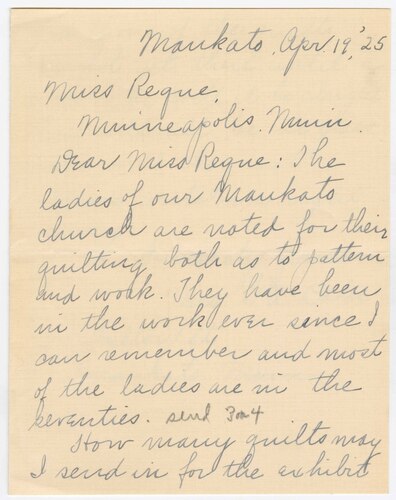 Mankato, Apr. 19, '25
Miss Reque,
Minneapolis. Minn.
Dear Miss Reque: The
ladies of our Mankato
church are noted for their
quilting both as to pattern
and work. They have been
in the work ever since I
can remember and most
of the ladies are in the
seventies. send 3 or 4
How many quilts may
I send in for the exhibit